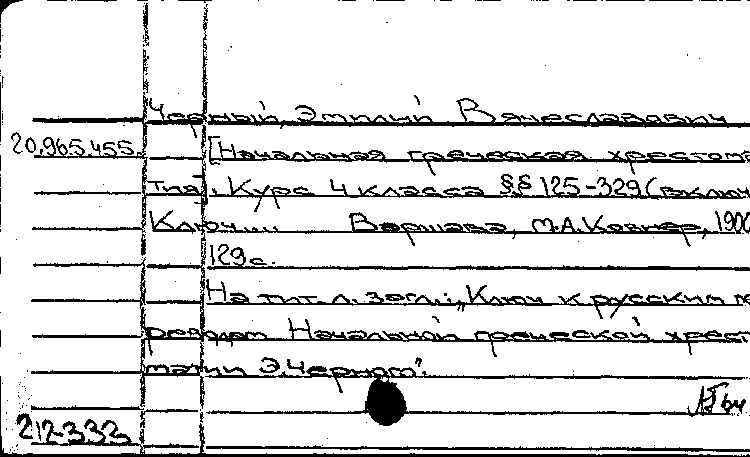 Черный, Эмилий Вячеславович
20.965.455. [Начальная греческая хрестома
тия]. Курс 4 класса §§ 125-329 (включ
Ключ... Варшава, М.А. Ковнер, 1900
129 с.
На тит. л. загл.: "Ключ к русским пе
реводам Начальной греческой хрест
матии Э. Черного".
212-332